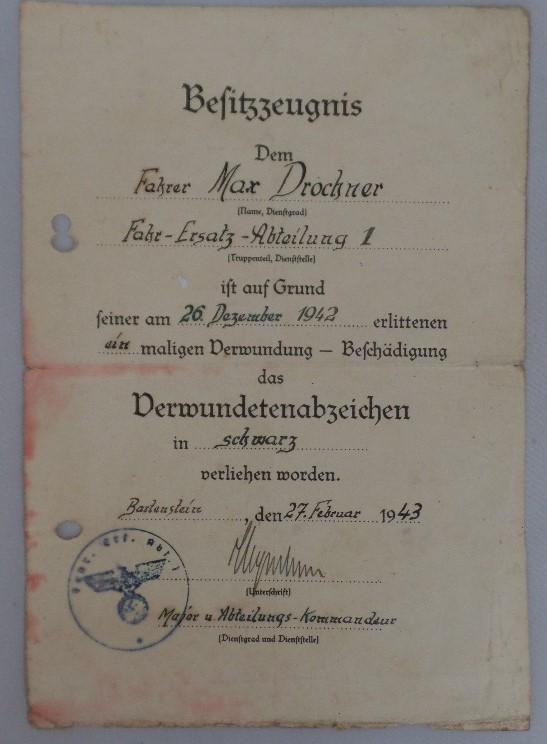 Besitzzeugnis
Dem
Fahrer Max Drochner
(Name, Dienstgrad)
Fahr-Ersatz-Abteilung 1
(Truppenteil, Dienststelle)
ist auf Grund
seiner am 26. Dezember 1942 erlittenen
ein maligen Verwundung – Beschädigung
das
Verwundetenabzeichen
in schwarz
verliehen worden.
Bartenstein, den 27. Februar 1943
(Unterschrift)
Major u. Abteilungs-Kommandeur
(Dienstgrad und Dienststelle)